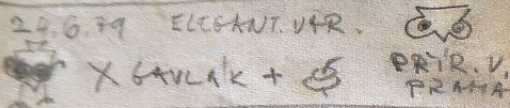 29.6.79 ELEGANT. VAR.
X GAVLÁK +
PŘÍR. V.
PRAHA